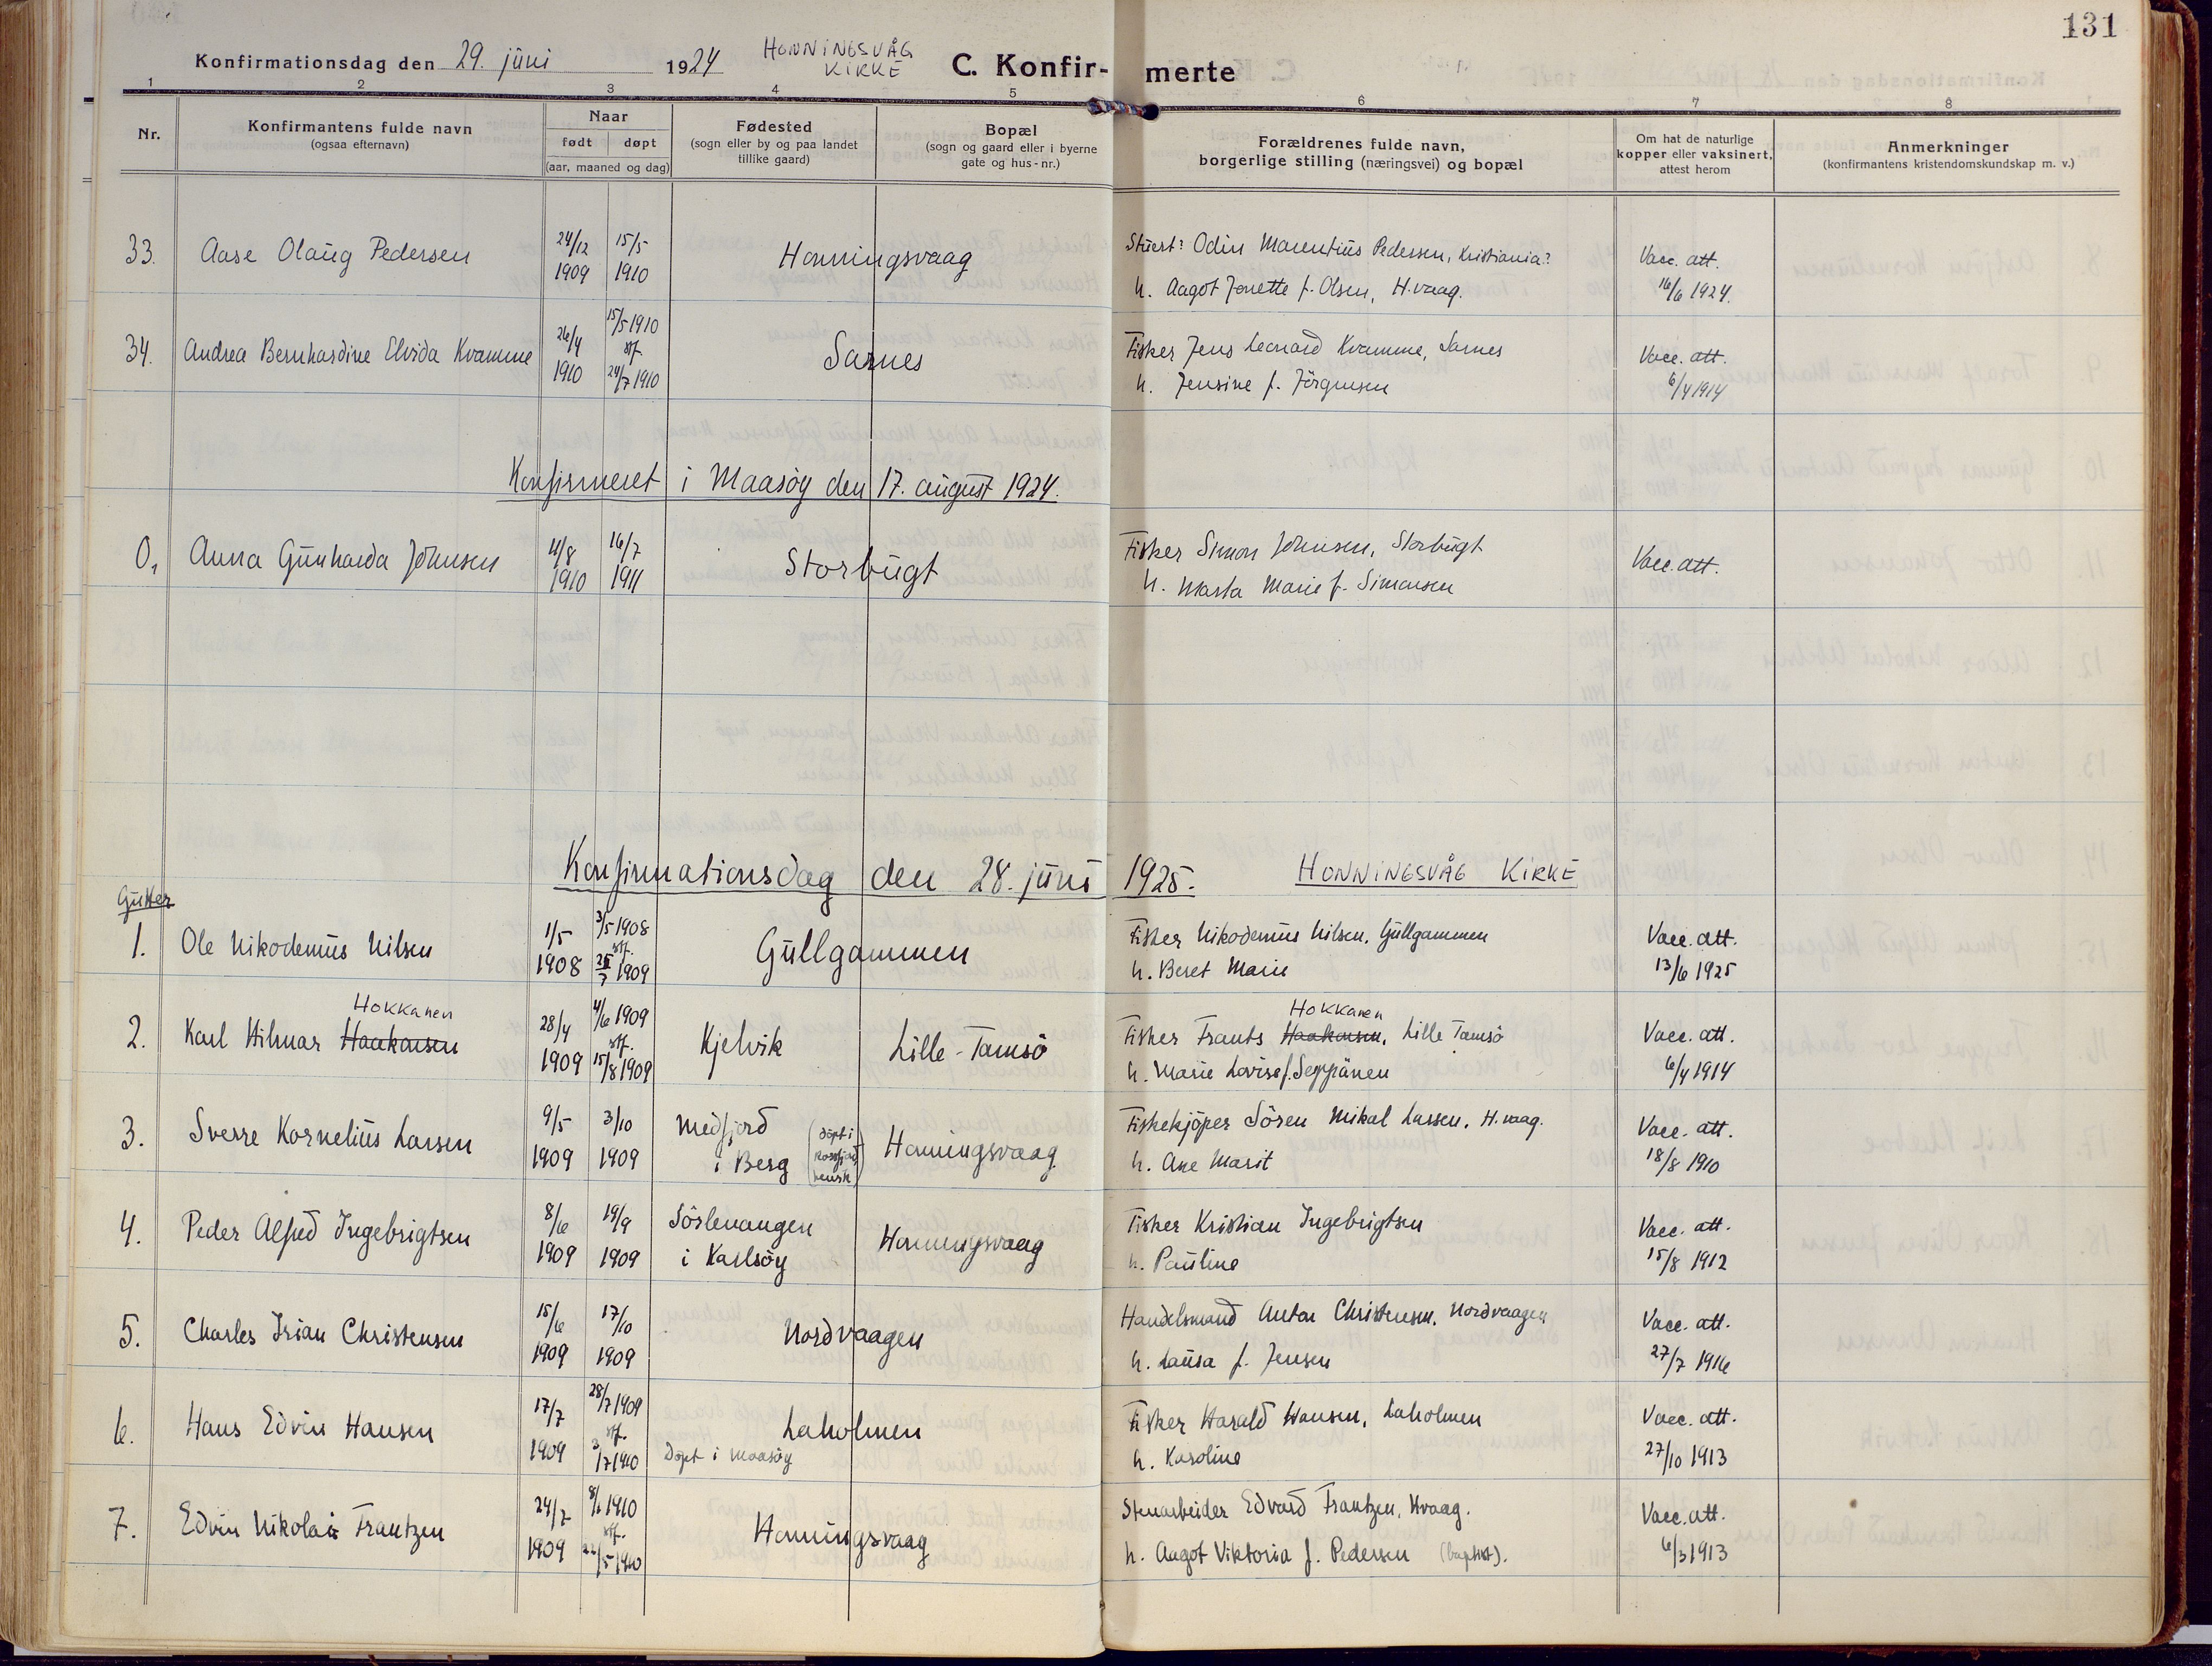 131
Konfirmationsdag den 29. juni 1924 HONNINGSVÅG KIRKE C. Konfirmerte
1 2 3 4 5 6 7 8
Nr.
Konfirmantens fulde navn
(ogsaa efternavn)
Naar
født døpt
(aar, maaned og dag)
Fødested
(sogn eller by og paa landet
tillike gaard)
Bopæl
(sogn og gaard eller i byerne
gate og hus-nr.)
Forældrenes fulde navn,
borgerlige stilling (næringsvei) og bopæl
Om hat de naturlige
kopper eller vaksinert,
attest herom
Anmerkninger
(konfirmantens kristendomskundskap m. v.)
33. Aase Olaug Pedersen 24/12 1909 15/5 1910 Honningsvaag Stuert? Odin Marentius Pedersen, Kristiania? Vacc. att.
h. Aagot Jenette f. Olsen, H.vaag. 16/6 1924.
34. Andrea Bernhardine Elvida Kvamme 26/4 1910 15/5 1910 stf. 24/7 1910 Sarnes Fisker Jens Leonard Kvamme, Sarnes Vacc. att.
h. Jensine f. Jörgensen 6/4 1914
Konfirmeret i Maasöy den 17. august 1924.
0, Anna Gunharda Johnsen 11/8 1910 16/7 1911 Storbugt Fisker Simon Johnsen, Storbugt Vacc. att.
h. Marta Marie f. Simonsen
Konfirmationsdag den 28. juni 1925. HONNINGSVÅG KIRKE
Gutter
1. Ole Nikodemus Nilsen 1/5 1908 3/5 1908 stf. 1909 Gullgammen Fisker Nikodemus Nilsen, Gullgammen Vacc. att.
h. Beret Marie 13/6 1925
Hokkanen Hokkanen
2. Karl Hilmar Haakonsen 28/4 1909 4/6 1909 stf. 15/8 1909 Kjelvik Lille-Tamsö Fisker Frants Haakonsen, Lille Tamsö Vacc. att.
h. Marie Lovise f. Seppänen 6/4 1914
3. Sverre Kornelius Larsen 9/5 1909 3/10 1909 Medfjord i Berg (döpt i luthersk) Honningsvaag Fiskekjöper Sören Mikal Larsen, H.vaag. Vacc. att.
h. Ane Marit 18/8 1910
4. Peder Alfred Ingebrigtsen 8/6 1909 19/9 1909 Sörlenangen i Karlsöy Honningsvaag Fisker Kristian Ingebrigtsen Vacc. att.
h. Pauline 15/8 1912
5. Charles Irian Christensen 15/6 1909 17/10 1909 Nordvaagen Handelsmand Anton Christensen, Nordvaagen Vacc. att.
h. Laura f. Jensen 27/7 1916
6. Hans Edvin Hansen 17/7 1909 28/7 1909 stf. 3/7 1910 Laholmen Döpt i Maasöy Fisker Harald Hansen, Laholmen Vacc. att.
h. Karoline 27/10 1913
7. Edvin Nikolai Frantzen 24/7 1909 8/1 1910 stf. 22/5 1910 Honningsvaag Stenarbeider Edvard Frantzen, Hvaag. Vacc. att.
h. Aagot Viktoria f. Pedersen (baptist). 6/3 1913